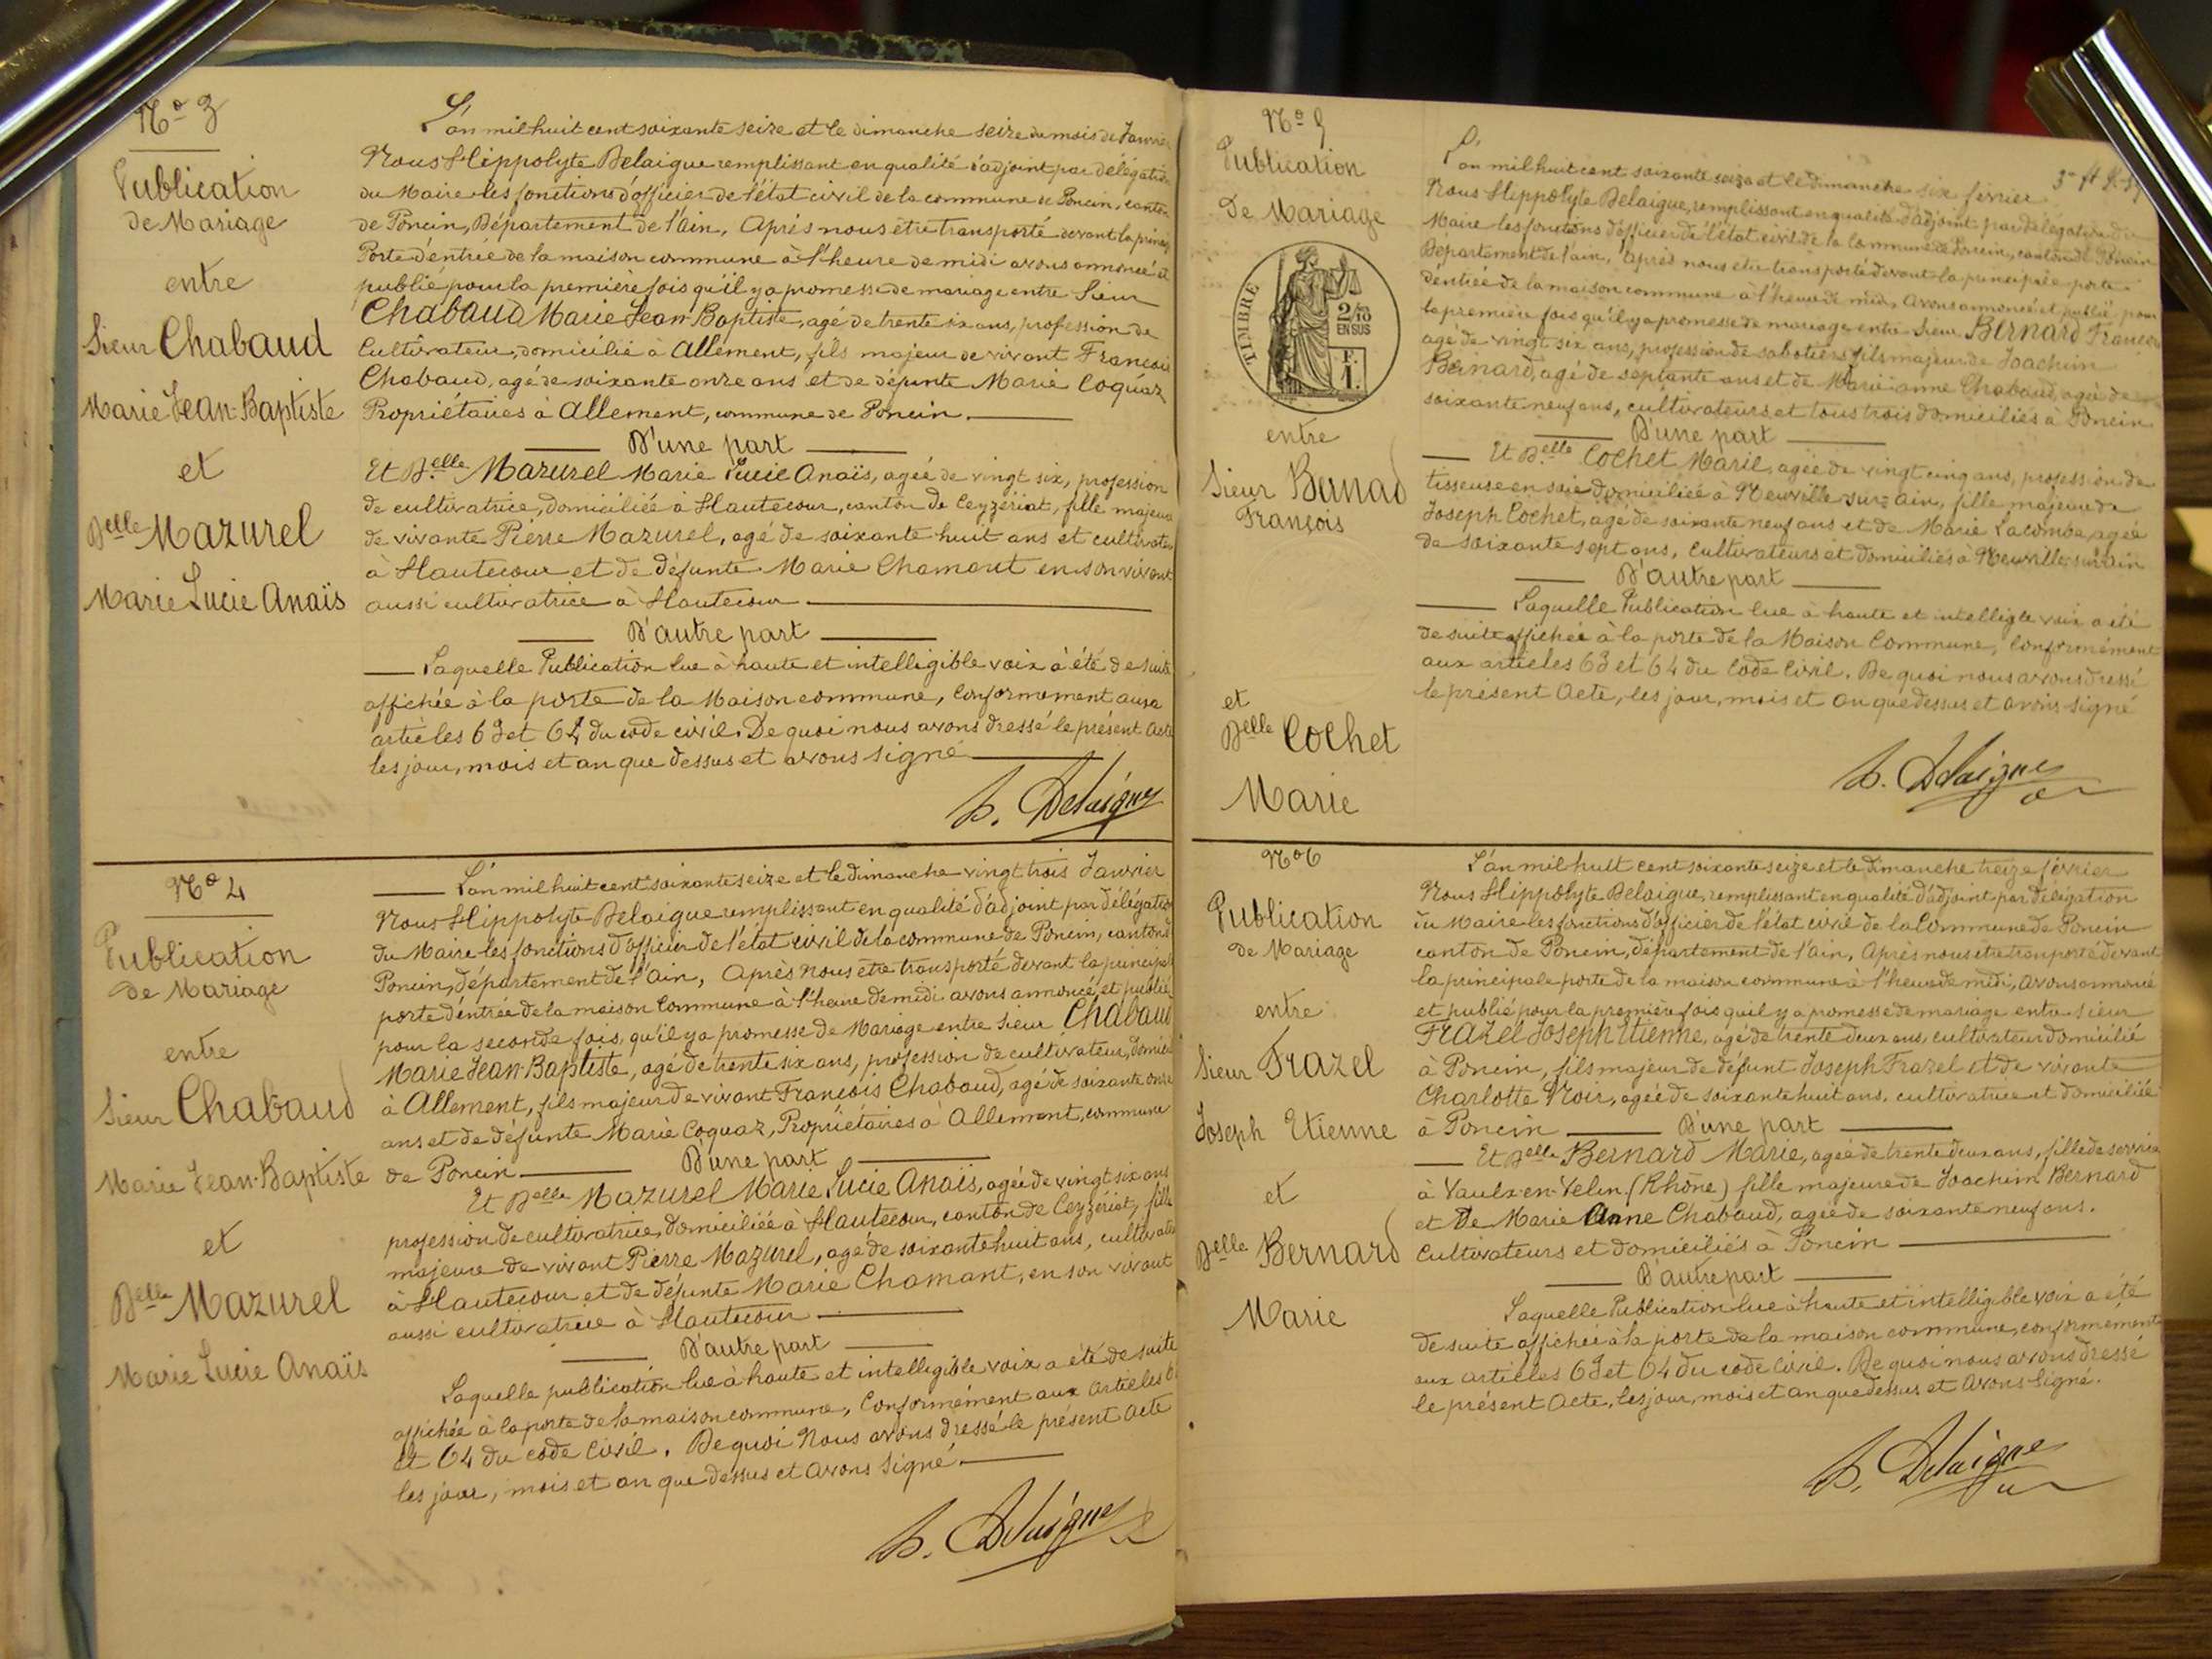 Nº 3
Publication
de Mariage
entre
Sieur Chabaud
Marie Jean-Baptiste
et
Delle Mazurel
Marie Lucie Anaïs
L'an mil huit cent soixante seize et le dimanche seize du mois de Janvier
Nous Hippolyte Delaigue remplissant en qualité d'adjoint par délégation
du Maire les fonctions d'officier de l'état civil de la commune de Poncin, canton
de Poncin, Département de l'ain, Après nous être transporté devant la princip
Porte d'éntrée de la maison commune à l'heure de midi avons annoncé et
publié pour la première fois qu'il y a promesse de mariage entre Sieur
Chabaud Marie Jean-Baptiste, agé de trente six ans, profession de
Cultivateur, domicilié à Allement, fils majeur de vivant François
Chabaud, agé de soixante onze ans et de défunte Marie Coquaz
Propriétaires à Allement, commune de Poncin.
D'une part
Et Delle Mazurel Marie Lucie Anaïs, agée de vingt six, profession
de cultivatrice, domiciliée à Hautecour, canton de Ceyzériat, fille majeure
de vivante Pierre Mazurel, agé de soixante huit ans et cultivateur
à Hautecour et de défunte Marie Chamant en son vivant
aussi cultivatrice à Hautecour
D'autre part
Laquelle Publication lue à haute et intelligible voix à été de suite
affichée à la porte de la Maison commune, Conformement aux
artièles 63 et 64 du code civil. De quoi nous avons dressé le présent acte
les jour, mois et an que dessus et avons signé
h. Delaigue
Nº 4
Publication
de Mariage
entre
Sieur Chabaud
Marie Jean-Baptiste
et
Delle Mazurel
Marie Lucie Anaïs
L'an mil huit cent soixante seize et le dimanche vingt trois Janvier
Nous Hippolyte Delaigue remplissant en qualité d'adjoint par délégation
du Maire les fonctions d'officier de l'état civil de la commune de Poncin, canton d
Poncin, département de l'ain, Après nous être transporté devant la principal
porte d'éntrée de la maison Commune à l'heure de midi avons annoncé et publié
pour la seconde fois, qu'il y a promesse de Mariage entre Sieur Chabaud
Marie Jean-Baptiste, agé de trente six ans, profession de cultivateur, domicil
à Allement, fils majeur de vivant François Chabaud, agé de soixante onze
ans et de défunte Marie Coquaz, Propriétaires à Allement, commune
de Poncin D'une part
Et Delle Mazurel Marie Lucie Anaïs, agée de vingt six ans
profession de cultivatrice, domiciliée à Hautecour, canton de Ceyzériat, fille
majeure de vivant Pierre Mazurel, agé de soixante huit ans, cultivateur
à Hautecour et de défunte Marie Chamant, en son vivant
aussi cultivatrice à Hautecour
D'autre part
Laquelle publication lue à haute et intelligible voix a été de suite
affichée à la porte de la maison commune, Conformément aux articles 6
et 64 du code Civil. De quoi Nous avons dressé le présent acte
les jour, mois et an que dessus et avons signé.
h. Delaigue
Nº 5
Publication
De Mariage
TIMBRE
2/10
EN SUS
F.
1.
entre
Sieur Bernard
François
et
Delle Cochet
Marie
L'an mil huit cent soixante seize et le dimanche six février
Nous Hippolyte Delaigue, remplissant en qualité d'adjoint par délégation du
Maire les fonctions d'officier de l'état civil de la Commune de Poncin, canton de Poncin
Département de l'ain, Après nous être transporté devant la principale porte
d'éntrée de la maison commune à l'heure de midi, avons annoncé et publié pour
la première fois qu'il y a promesse de mariage entre Sieur Bernard François
agé de vingt six ans, profession de sabotiers fils majeur de Joachim
Bernard, agé de septante ans et de Marie-anne Chabaud, agée de
soixante neuf ans, cultivateurs et tous trois domiciliés à Poncin
D'une part
Et Delle Cochet Marie, agée de vingt cinq ans, profession de
tisseuse en soie domiciliée à Neuville-sur-ain, fille majeure de
Joseph Cochet, agé de soixante neuf ans et de Marie Lacombe, agée
de soixante sept ans, Cultivateurs et domiciliés à Neuville-sur-ain
D'autre part
Laquelle Publication lue à haute et intelligle voix a été
de suite affichée à la porte de la Maison Commune, Conformément
aux articles 63 et 64 du Code Civil. De quoi nous avons dressé
le présent Acte, les jour, mois et an que dessus et avons signé
h. Delaigue
Nº 6
Publication
de Mariage
entre
Sieur Frazel
Joseph Etienne
et
Delle Bernard
Marie
L'an mil huit cent soixante seize et le Dimanche treize février
Nous Hippolyte Delaigue, remplissant en qualité d'adjoint par délégation
du Maire les fonctions d'officier de l'état civil de la Commune de Poncin
canton de Poncin, département de l'ain, Après nous être transporté devant
la principale porte de la maison commune à l'heure de midi, avons annoncé
et publié pour la première fois qu'il y a promesse de mariage entre sieur
Frazel Joseph Etienne, agé de trente deux ans, cultivateur domicilié
à Poncin, fils majeur de défunt Joseph Frazel et de vivante
Charlotte Noir, agée de soixante huit ans, cultivatrice et domiciliée
à Poncin D'une part
Et Delle Bernard Marie, agée de trente deux ans, fille de service
à Vaulx-en-Velin (Rhône) fille majeure de Joachim Bernard
et de Marie Anne Chabaud, agée de soixante neuf ans.
Cultivateurs et domiciliés à Poncin
D'autre part
Laquelle Publication lue à haute et intelligible voix a été
de suite affichée à la porte de la maison commune, conformément
aux articles 63 et 64 du code Civil. De quoi nous avons dressé
le présent Acte, les jour, mois et an que dessus et avons signé.
h. Delaigue